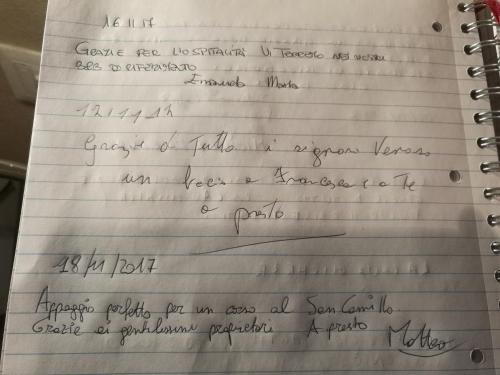 16.11.17
GRAZIE PER L'OSPITALITÀ VI TERREMO NEI NOSTRI
B&B DI RIFERIMENTO
Emanuela Marta
Grazie d Tutto i signori
un bacio a Francesca e a Te
a presto
18/11/2017
Appoggio perfetto per un corso al San Camillo.
Grazie ai gentilissimi proprietari A presto
Matteo